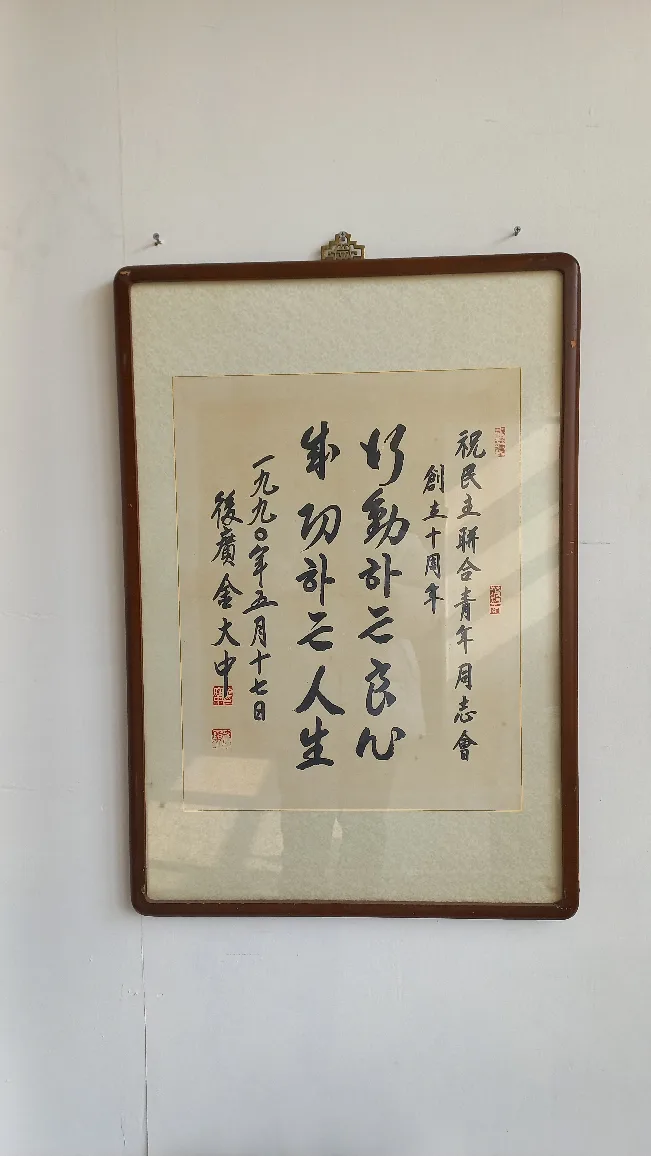 祝民主聯合青年同志會
創立十周年
行動하는良心
成功하는人生
一九九〇年五月十七日
後廣金大中